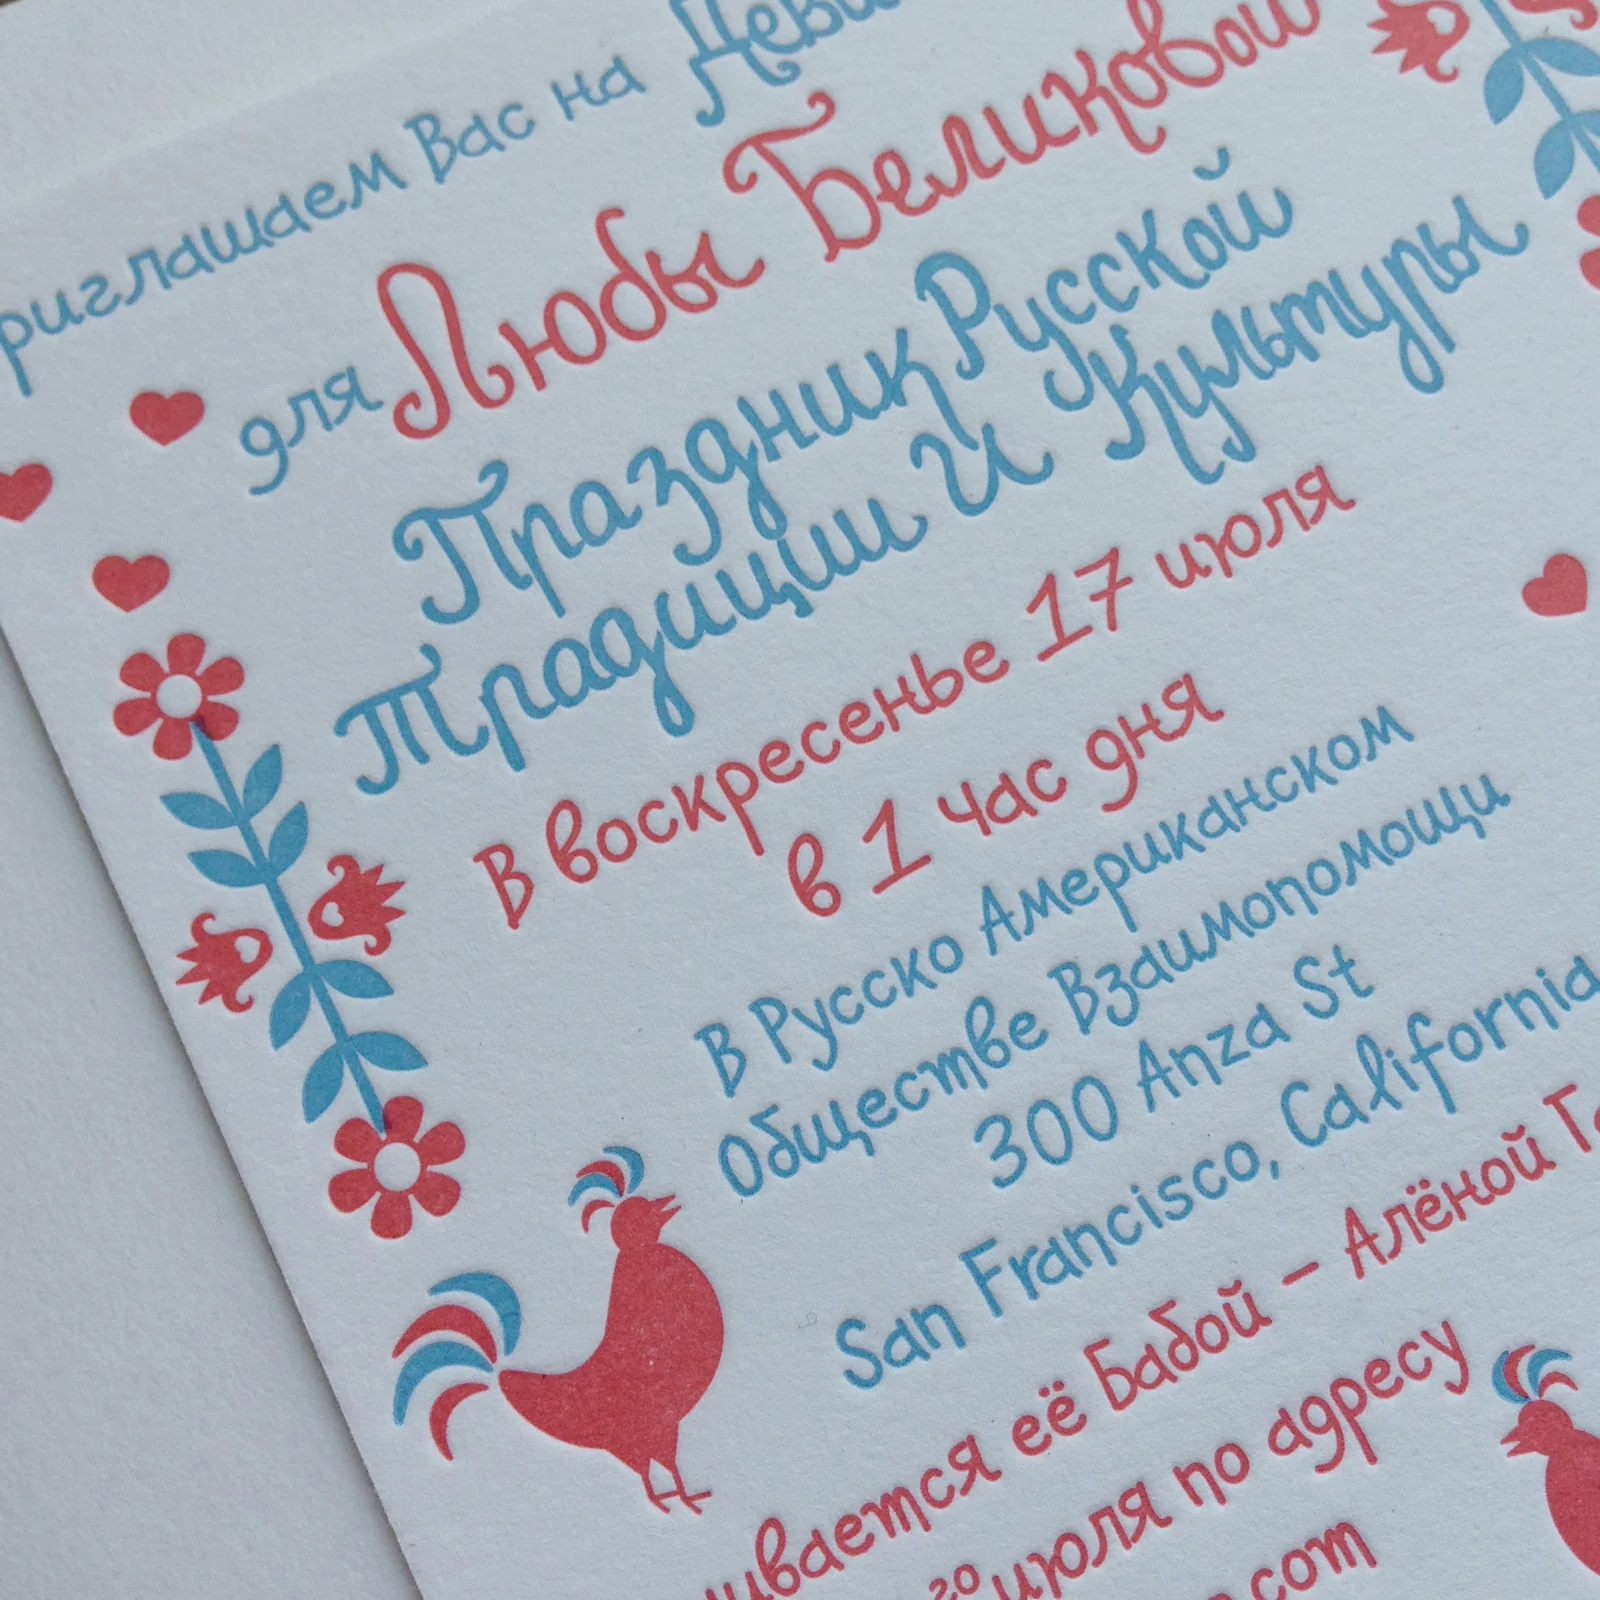 риглашаем Вас на Деви
для Любы Беликовой
Праздник Русской
Традиции И Культуры
В воскресенье 17 июля
в 1 час дня
В Русско Американском
Обществе Взаимопомощи
300 Anza St
San Francisco, California
ивается её Бабой – Алёной Г
го июля по адресу
.com